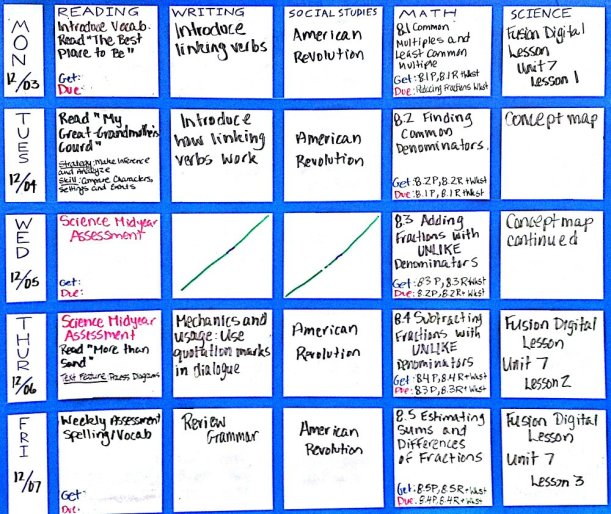 READING
WRITING
SOCIAL STUDIES
MATH
SCIENCE
MON
12/03
Introduce Vocab.
Read "The Best
Place to Be"
Get:
Due:
Introduce
linking verbs
American
Revolution
8.1 Common
Multiples and
Least Common
Multiple
Get: 8.1P, 8.1R+Wkst
Due: Reducing Fractions Wkst
Fusion Digital
Lesson
Unit 7
Lesson 1
TUES
12/04
Read "My
Great-Grandmother's
Gourd"
Strategy: Make Inference
and Analyze
Skill: Compare Characters,
Settings and Events
Introduce
how linking
verbs work
American
Revolution
8.2 Finding
Common
Denominators.
Get: 8.2P, 8.2R+Wkst
Due: 8.1P, 8.1R+Wkst
Concept map
WED
12/05
Science Midyear
Assessment
Get:
Due:
8.3 Adding
Fractions with
UNLIKE
Denominators
Get: 8.3P, 8.3R+Wkst
Due: 8.2P, 8.2R+Wkst
Concept map
continued
THUR
12/06
Science Midyear
Assessment
Read "More than
Sand"
Text Feature: Process Diagrams
Mechanics and
usage: Use
quotation marks
in dialogue
American
Revolution
8.4 Subtracting
Fractions with
UNLIKE
Denominators
Get: 8.4P, 8.4R+Wkst
Due: 8.3P, 8.3R+Wkst
Fusion Digital
Lesson
Unit 7
Lesson 2
FRI
12/07
Weekly Assessment
Spelling/Vocab
Get:
Due:
Review
Grammar
American
Revolution
8.5 Estimating
Sums and
Differences
of Fractions
Get: 8.5P, 8.5R+Wkst
Due: 8.4P, 8.4R+Wkst
Fusion Digital
Lesson
Unit 7
Lesson 3